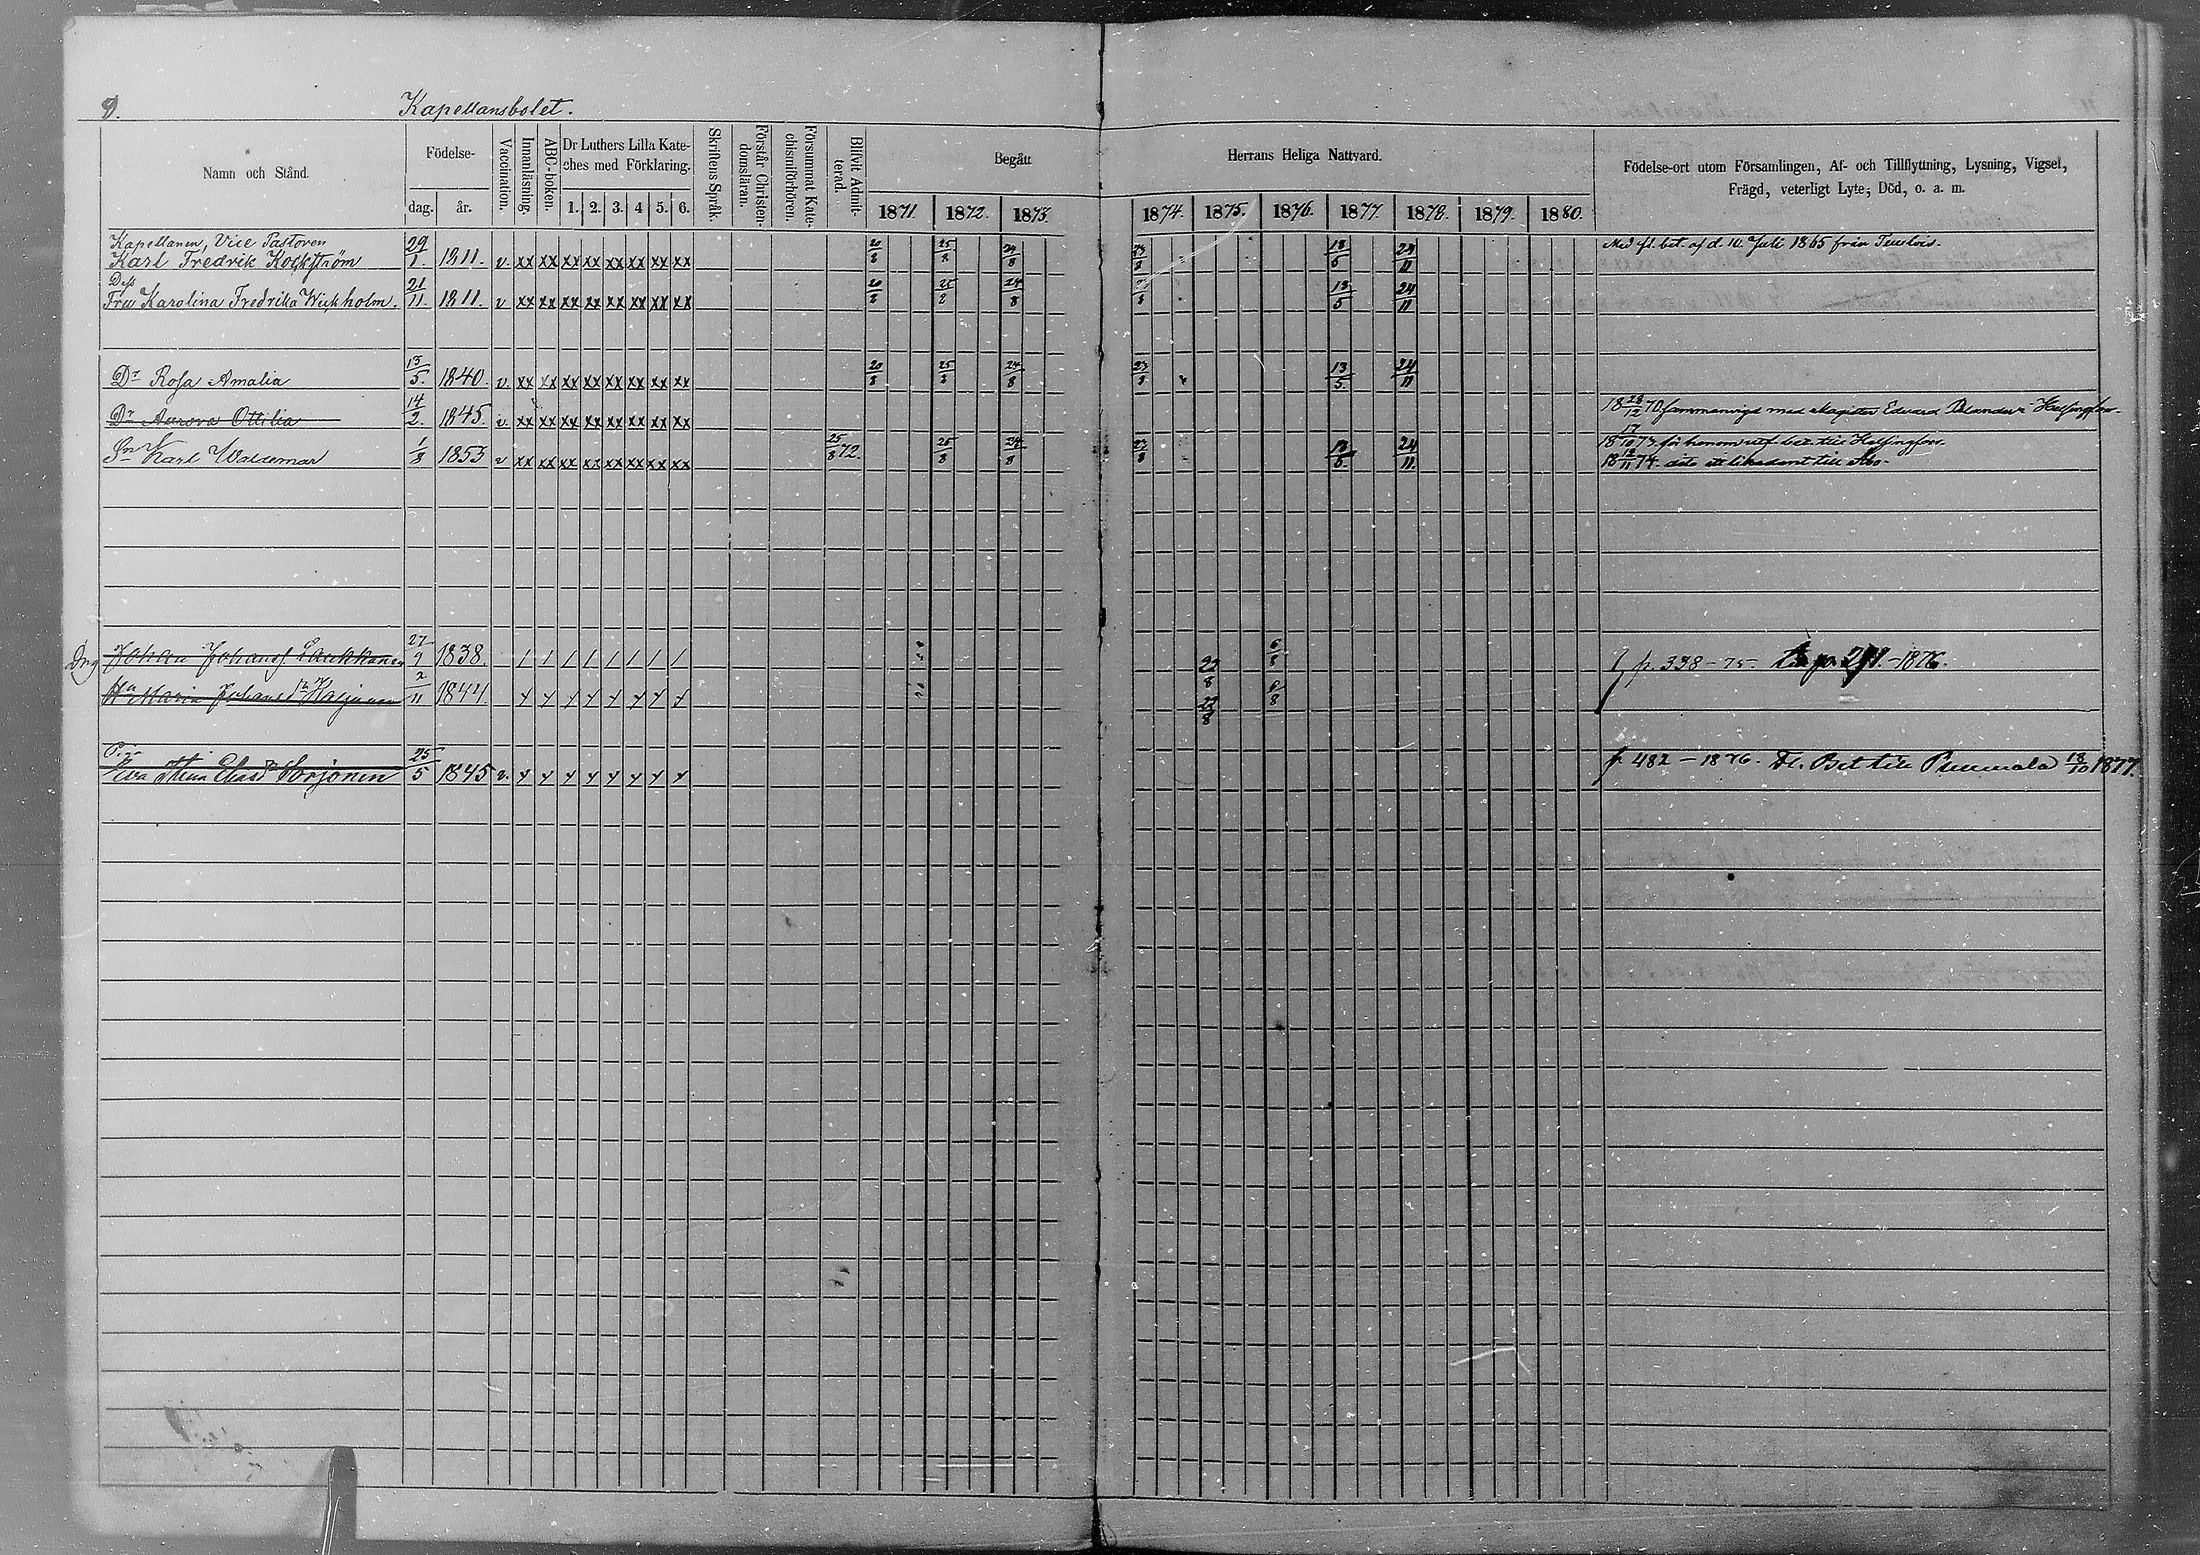 9. Kapellansbolet.
Namn och Stånd. Födelse- dag. år. Vaccination. Innanläsning. ABC-boken. Dr Luthers Lilla Kateches med Förklaring. 1. 2. 3. 4 5. 6. Skriftens Språk Förstår Christendomsläran. Försummat Katechismiförhören. Blifvit Admitterad. Begått 1871. 1872. 1873.
Herrans Heliga Nattvard. 1874. 1875. 1876. 1877. 1878. 1879. 1880. Födelse-ort utom Församlingen, Af- och Tillflyttning, Lysning, Vigsel, Frägd, veterligt Lyte, Död, o. a. m.
Kapellanen, Vice Pastoren
Karl Fredrik Kockström 29/1. 1811. v. xx xx xx xx xx xx xx xx 20/8 25/8 24/8 23/8 13/5 24/11 Med fl. bet. af d. 10 Juli 1865 från
Dess
Fru Karolina Fredrika Wickholm. 21/11 1811. v xx xx xx xx xx xx xx xx 20/8 25/8 24/8 13/5 24/11
Dr Rosa Amalia 13/5. 1840. v. xx xx xx xx xx xx xx xx 20/8 25/8 24/8 23/8 13/5. 24/11
Dr Aurora Ottilia 14/2. 1845. v. xx xx xx xx xx xx xx xx 18 28/12 70 sammanvigd med Magister Edvard i Helsingfors.
Sn Karl Waldemar 1/8 1853 v xx xx xx xx xx xx xx xx 25/8 72. 25/8 24/8 23/8 13/5. 24/11. 18 17/10 73 för honom utf. bet. till Helsingfors.
18 12/11 74. dito till Åbo.
Drg Johan Johanss. Laukkanen 27/9 1838. / / / / / / / / 22/8 6/8 p. 338-75. -1876.
Hu Maria Johansdr 2/11 1844. x x x x x x x x 22/8 6/8
Pig.
Eva Stina Eliasdr Sorjonen 25/5 1845 v. x x x x x x x x p 482 - 1876. Bet till Pummala 18/10 1877.